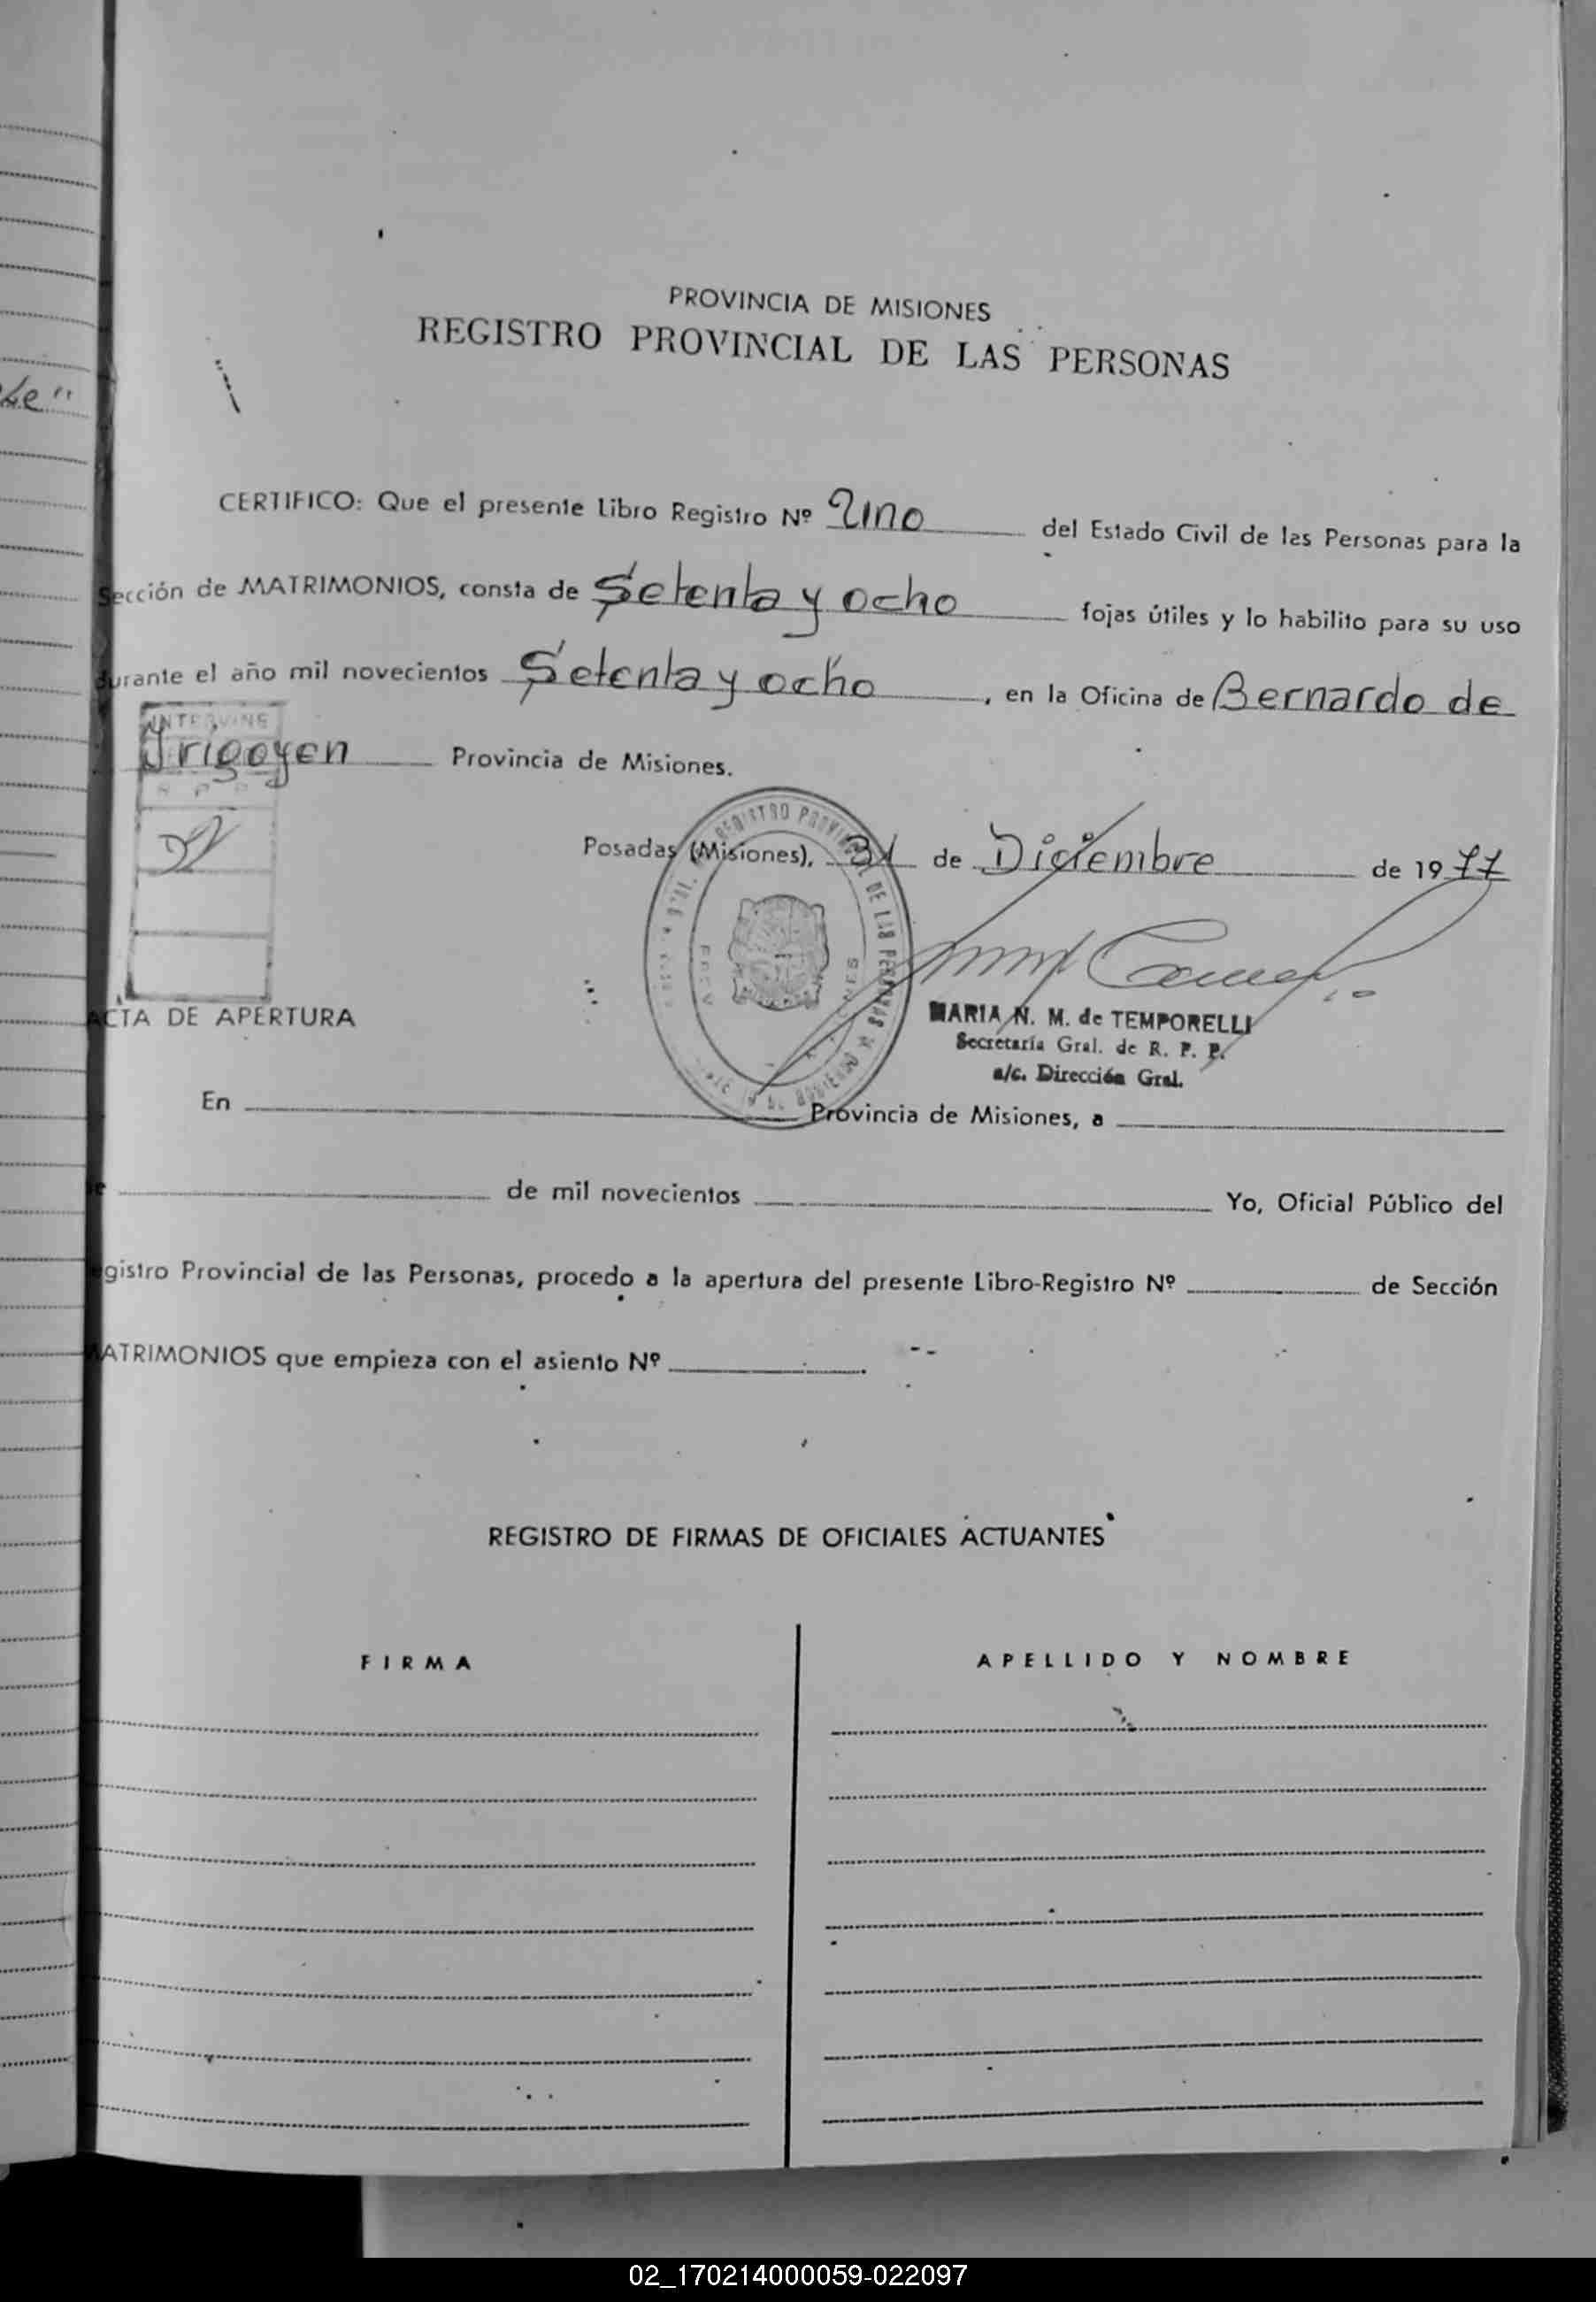 PROVINCIA DE MISIONES
REGISTRO PROVINCIAL DE LAS PERSONAS
CERTIFICO: Que el presente Libro Registro Nº Uno del Estado Civil de las Personas para la
Sección de MATRIMONIOS, consta de Setenta y ocho fojas útiles y lo habilito para su uso
durante el año mil novecientos Setenta y ocho, en la Oficina de Bernardo de
INTERVINE
Irigoyen Provincia de Misiones.
Posadas (Misiones), 31 de Diciembre de 1977
REGISTRO PROVINCIAL DE LAS PERSONAS
MARIA N. M. de TEMPORELLI
Secretaría Gral. de R. P. P.
a/c. Dirección Gral.
ACTA DE APERTURA
En Provincia de Misiones, a
de mil novecientos Yo, Oficial Público del
gistro Provincial de las Personas, procedo a la apertura del presente Libro-Registro Nº de Sección
MATRIMONIOS que empieza con el asiento Nº .
REGISTRO DE FIRMAS DE OFICIALES ACTUANTES
FIRMA APELLIDO Y NOMBRE
02_170214000059-022097